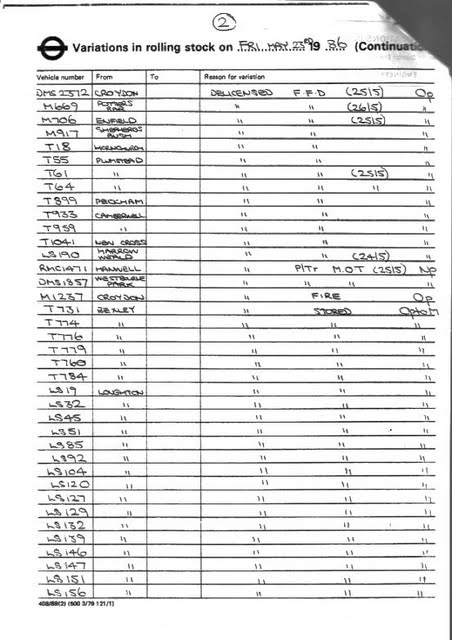 2
Variations in rolling stock on FRI. MAY. 23RD 19 86 (Continuati
Vehicle number From To Reason for variation
DMS2572 CROYDON DELICENSED F.F.D (25/5) Op
M669 POTTERS BAR " " (26/5) "
M706 ENFIELD " " (25/5) "
M917 SHEPHERDS BUSH " " "
T18 HORNCHURCH " " "
T55 PLUMSTEAD " " "
T61 " " " (25/5) "
T64 " " " " "
T899 PECKHAM " " "
T933 CAMBERWELL " " "
T959 " " " "
T1041 NEW CROSS " " "
LS190 HARROW WEALD " " (24/5) "
RMC1471 HANWELL " P/Tr M.O.T (25/5) Np
DMS1857 WESTBOURNE PARK " " " " "
M1237 CROYDON " FIRE Op
T731 BEXLEY " STORED OptoM
T774 " " " "
T776 " " " "
T779 " " " "
T760 " " " "
T784 " " " "
LS19 LOUGHTON " " "
LS32 " " " "
LS45 " " " "
LS51 " " " "
LS85 " " " "
LS92 " " " "
LS104 " " " "
LS120 " " " "
LS127 " " " "
LS129 " " " "
LS132 " " " "
LS139 " " " "
LS146 " " " "
LS147 " " " "
LS151 " " " "
LS156 " " " "
408/88(2) (500 3/79 121/1)